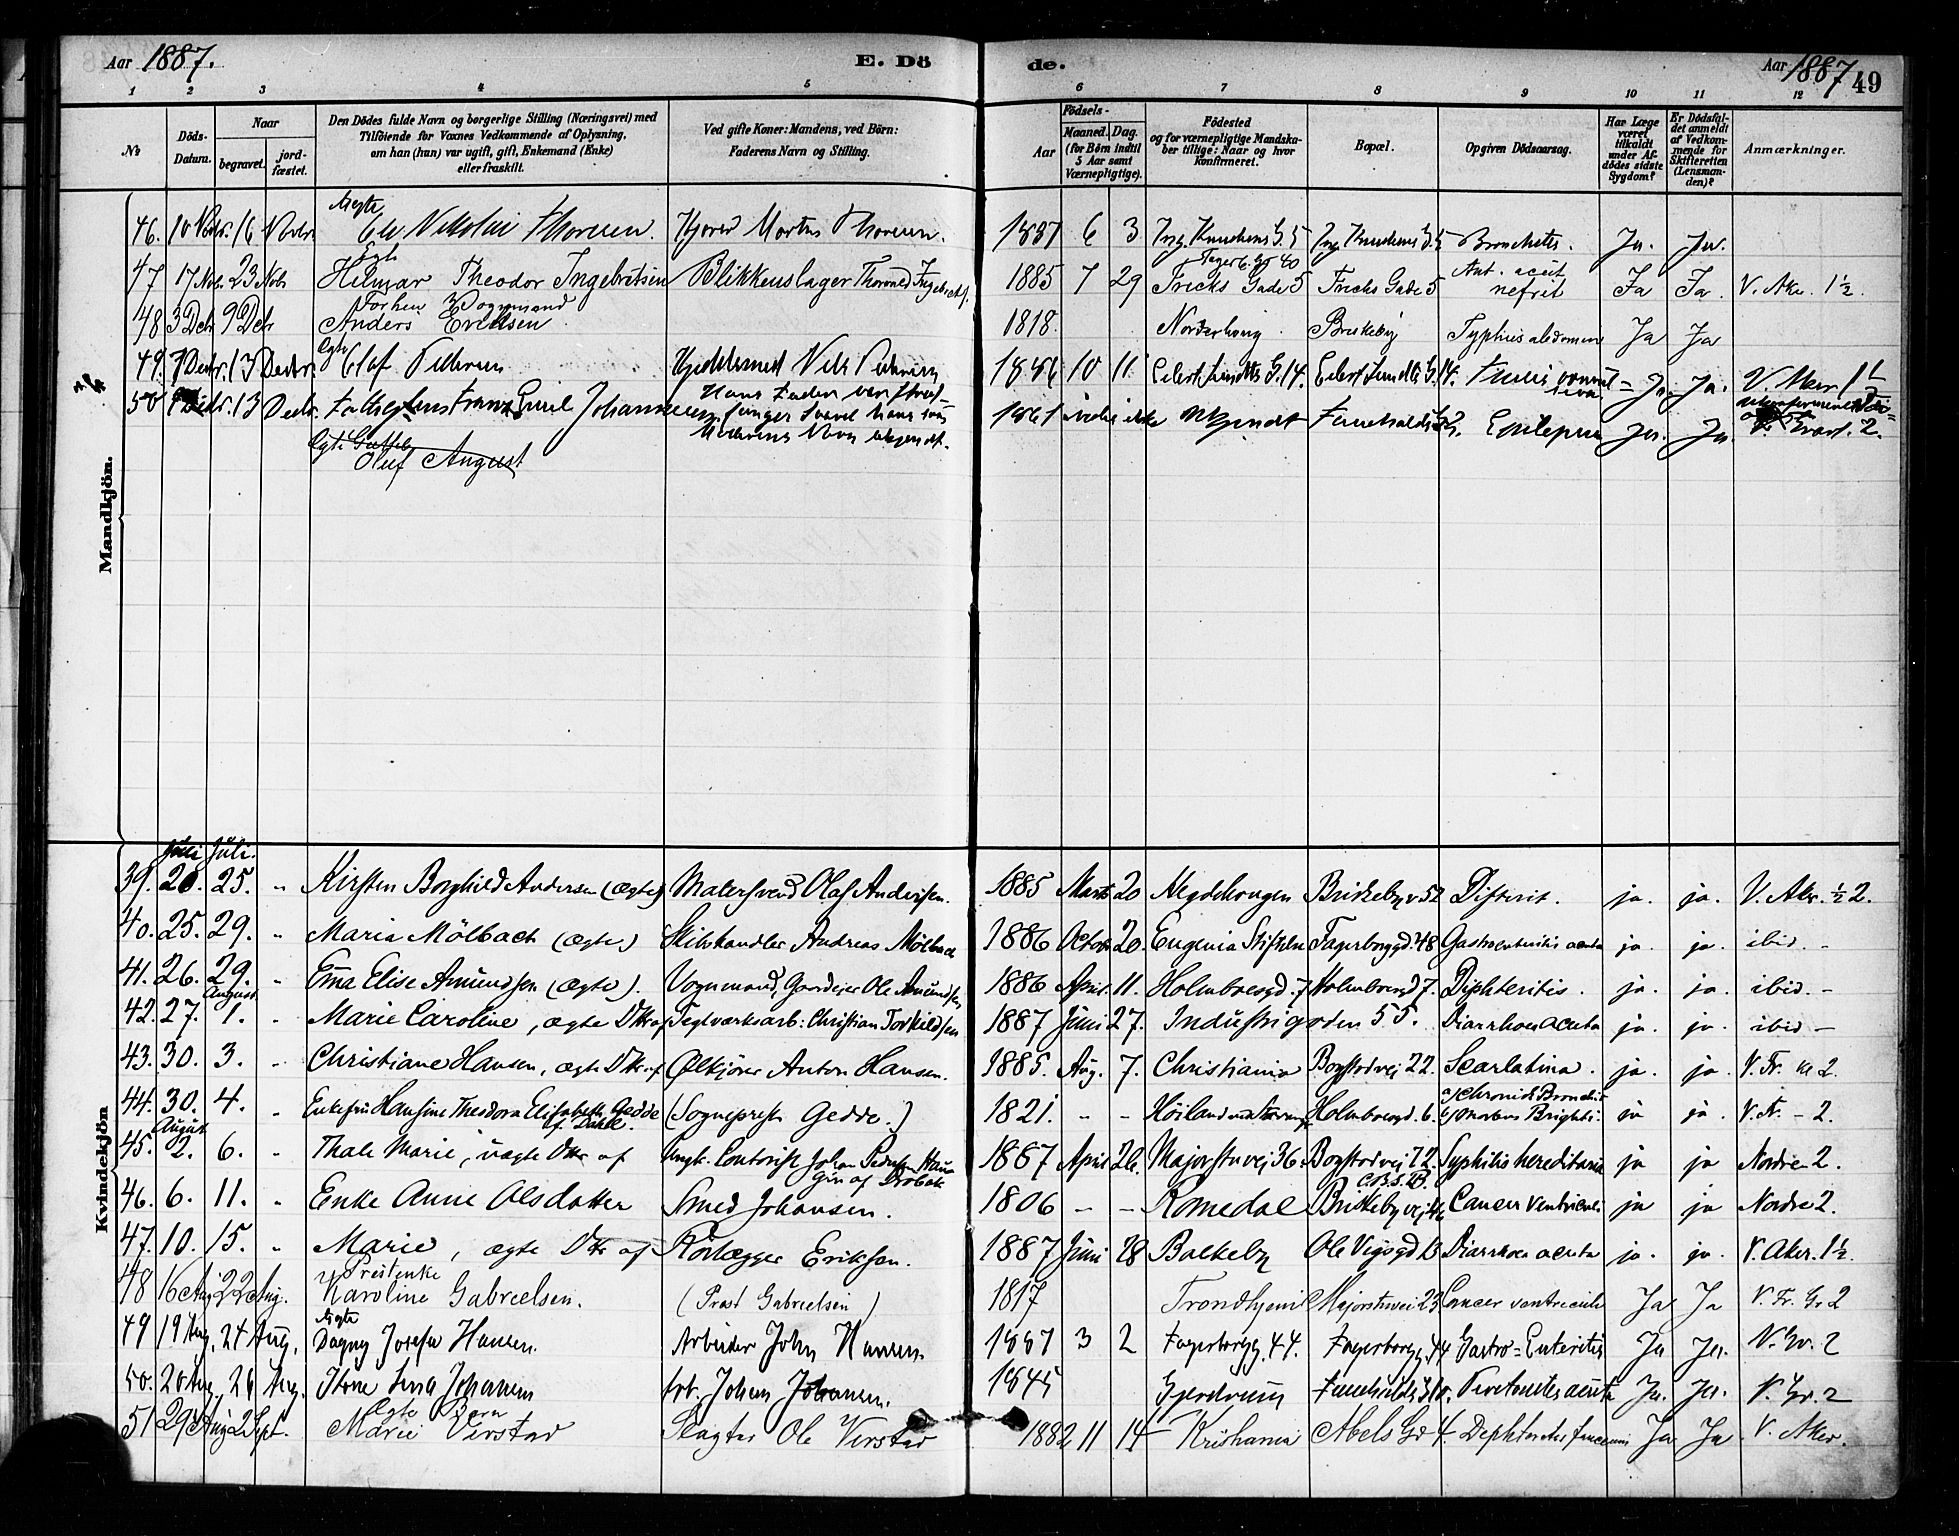 Aar 1887. E. Dö de. Aar 1887 49
1 2 3 4 5 6 7 8 9 10 11 12
№ Döds-Datum. Naar begravet. jord-fæstet. Den Dödes fulde Navn og borgerlige Stilling (Næringsvei) med Tilföiende for Voxnes Vedkommende af Oplysning, om han (hun) var ugift, gift, Enkemand (Enke) eller fraskilt. Ved gifte Koner: Mandens, ved Börn: Faderens Navn og Stilling. Födsels- Aar Maaned. Dag. (for Börn indtil 5 Aar samt Værnepligtige). Födested og for værnepligtige Mandskaber tillige: Naar og hvor konfirmeret. Bopæl. Opgiven Dödsaarsag. Har Læge været tilkaldt under Afdödes sidste Sygdom? Er Dödsfaldet anmeldt af Vedkommende for Skifteretten (Lensmanden)? Anmærkninger.
Mandkjön.
46. 10 Novbr. 16 Novbr. Ægte Nikolai Thoresen. Morten Thoresen. 1887 6 3 Ing. Knudsens G. 5 Ing. Knudsens G. 5 Bronchitis. Ja. Ja.
47 17 Nov. 23 Nov Egte Hilmar Theodor Ingebretsen Blikkenslager Thorvald Ingebrets. 1885 7 29 Fricks Gade 5 Fricks Gade 5 acut nefrit Ja Ja. V. Aker 1½.
48 3 Dcbr 9 Dcbr Forhen Vognmand Anders Eriksen 1818. Norderhoug Briskeby Typhus abdomin Ja Ja
49. 7 Decbr. 13 Decbr. Egte Olaf Pedersen Nils Pedersen 1886 10 11 Eilert Sundts G. 14. Eilert Sundts G. 14. Ja. Ja. V. Aker 1½
50 Decbr. 13 Decbr. Franz Emil Johannesen Hans Fader var Moderens Navn ukjendt. 1861 ikke Ukjendt Epilepsia Ja. Ja. 2.
Egte Oluf August
Kvindekjön
Juli Juli.
39. 20. 25. " Kirsten Borghild Andersen (ægte) Malersvend Olaf Andersen. 1885 Marts 20 Hegdehougen Briskebyv. 52 Difterit. ja. ja. V. Aker. ½ 2.
40. 25. 29. " Maria Mölbach (ægte) Skibshandler Andreas Mölbach 1886 Octob. 20. Eugenia Stiftelse Fagerborggd. 48 Gastroenteritis acuta ja. ja. ibid. –
41. 26. 29. " Ema Elise Amundsen (ægte). Vognmand, Gaardeier Ole Amundsen 1886 April. 11. Holmboesgd. 7 Holmboesgd 7. Diphteritis. ja. ja. ibid. –
August
42. 27. 1. " Marie Caroline, ægte Dttr af Teglværksarb: Christian Torkildsen 1887 Juni 27. Industrigaden 55. Diarrhoea acuta ja. ja. ibid –
43. 30. 3. " Christiane Hansen, ægte Dttr af Ølkjörer Anton Hansen. 1885. Aug. 7. Christiania Bogstadvej 22. Scarlatina. ja. ja. V. Fr. 2
44. 30. 4. " Enkefru Hansine Theodora Elisabeth Gedde f. Dahll. (Sogneprest Gedde.) 1821. – – Höiland Holmboesgd. 6. a) chronisk Bronchit b) Morbus Brighti. ja ja. V. Fr. – 2.
August
45. 2. 6. " Thale Marie, uægte Dttr af Ungk. Contorist Johan Pedersen 1887 April 26. Majorstuvej 36. Bogstadvej 72. Syphilis hereditaria ja ja Nordre 2.
46. 6. 11. " Enke Anne Olsdatter Smed Johansen. 1806 – – Romedal Briskebyvej Cancer ventriculi ja ja Nordre 2.
47. 10. 15. " Marie, ægte Dttr af Rörlægger Eriksen. 1887 Juni 28 Bakkeby Ole Vigsgd 13 Diarrhoea acuta ja. ja. V. Aker. 1½.
48 16 Aug 22 Aug. Prestenke Karoline Gabrielsen. (Prost Gabrielsen) 1817 Trondhjem Majorstuvei 23 Cancer ventriculi Ja Ja V. Fr. Gr 2
49 19 Aug. 24 Aug. Ægte Dagny Josefa Hansen. Arbeider John Hansen. 1887 3 2 Fagerborgg. 44. Fagerborgg. 44 Gastro=Enteritis Ja Ja. V. Gr. 2
50. 20 Aug. 26 Aug. Johansen Arb. Johan Johansen. 1845 Gjerdrum Peritonitis acuta Ja. Ja. V. Gr. 2
51 29 Aug 2 Sept. Egte Barn Marie Verstad Slagter Ole Verstad 1882 11 14 Kristiania Abels Gd 4. Diphteritis faucium Ja Ja V. Aker.